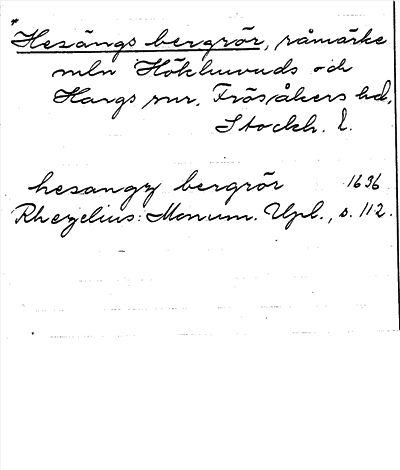 *
Hesängs bergrör, råmärke
mln Hökhuvuds och
Hargs snr, Frösåkers hd,
Stockh. l.
hesangz bergrör 1636
Rhezelius: Monum. Upl., s. 112.